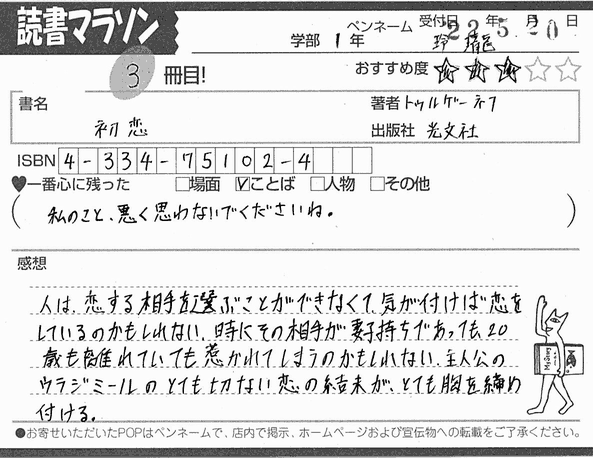 読書マラソン
学部 1年 ペンネーム 玲 瑠邑 受付日 22年5月20日
3 冊目! おすすめ度
書名 初恋
著者 トゥルゲーネフ
出版社 光文社
ISBN 4-334-75102-4
♥一番心に残った □場面 ☑ことば □人物 □その他
(私のこと、悪く思わないでくださいね。)
感想
人は、恋する相手を選ぶことができなくて、気が付けば恋を
しているのかもしれない。時にその相手が妻子持ちであっても20
歳も離れていても惹かれてしまうのかもしれない。主人公の
ウラジミールのとても切ない恋の結末が、とても胸を締め
付ける。
●お寄せいただいたPOPはペンネームで、店内で掲示、ホームページおよび宣伝物への転載をご了承ください。